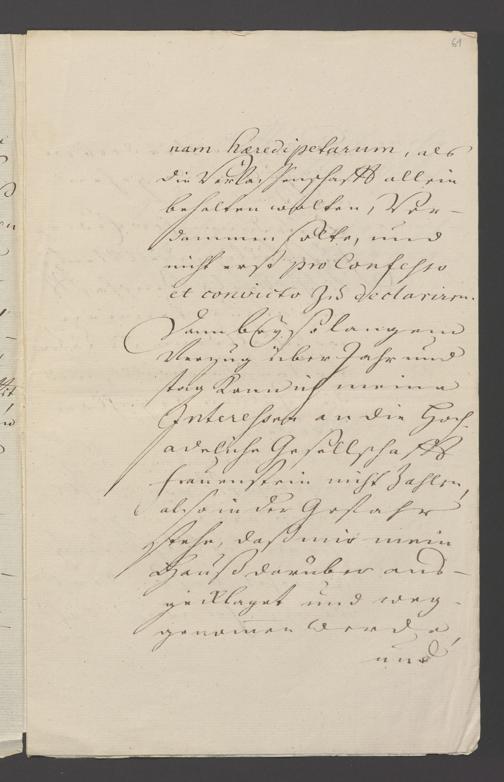 61
nam hæredipetarum, als
die Verlassenschafft allein
behalten wolten, Ver-
dammen solte, und
nicht erst pro Confesso
et convicto zu declariren.
Dann bey so langem
Verzug über Jahr und
tag kann ich meine
Interessen an die Hoch-
adeliche Gesellschafft
frauenstein nicht Zahlen,
also in der Gefahr
stehe, daß mir mein
Hauß darüber aus-
geklaget und weg-
genomen werde,
und